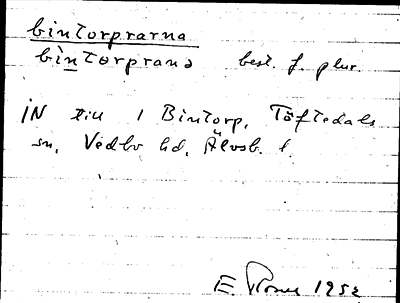 bintorprarna
bintorprana best. f. plur.
IN till 1 Bintorp, Töftedals
sn, Vedbo hd, Älvsb. l.
E. 1952